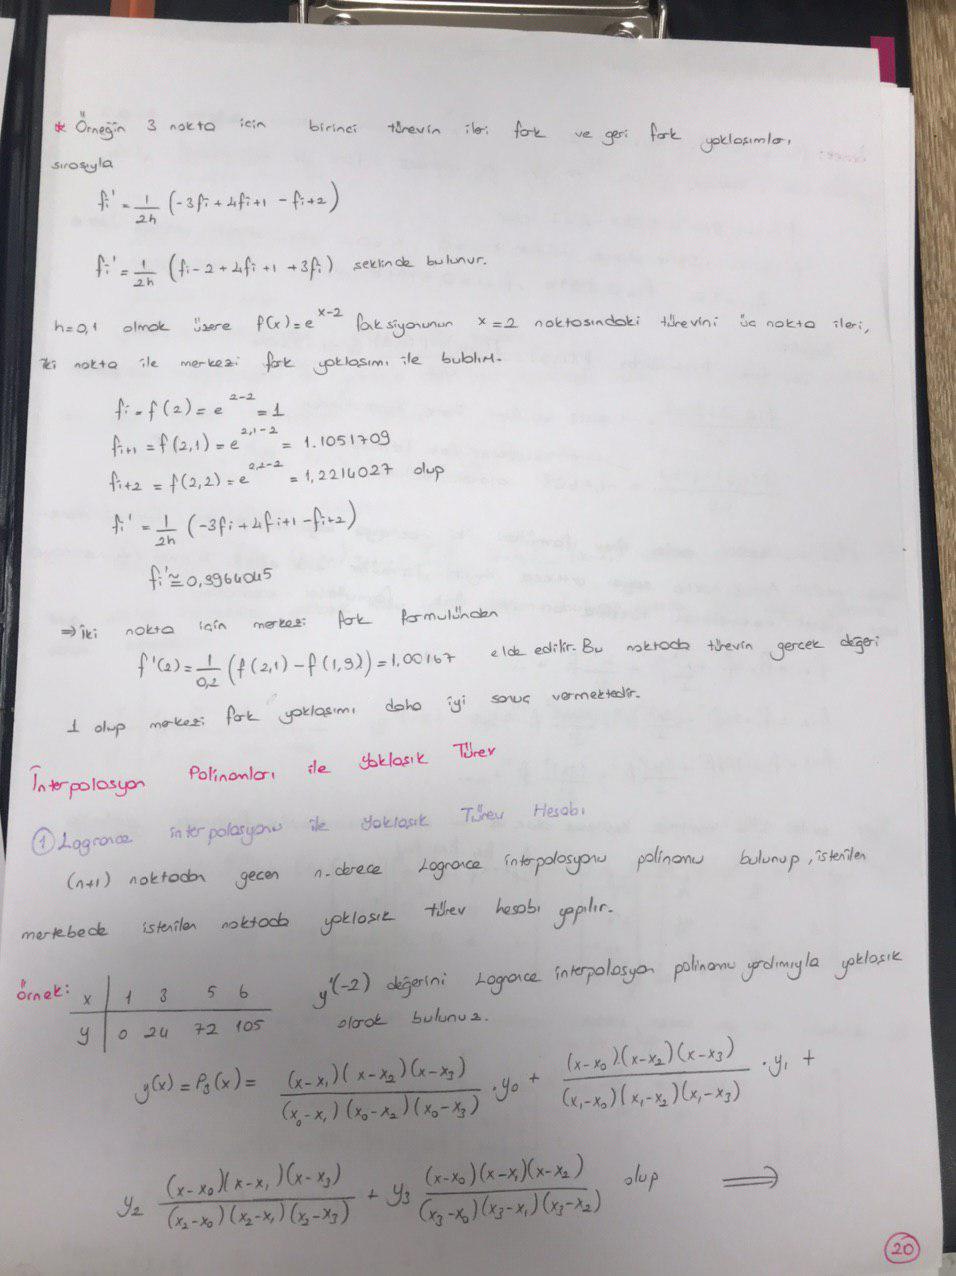 * Örneğin 3 nokta için birinci türevin ileri fark ve geri fark yaklaşımları,
sırasıyla
fi' = 1/2h (-3fi + 4fi+1 - fi+2)
fi' = 1/2h (fi-2 + 4fi+1 + 3fi) şeklinde bulunur.
h=0,1 olmak üzere f(x)=e^x-2 foksiyonunun x=2 noktasındaki türevini üç nokta ileri,
iki nokta ile merkezi fark yaklaşımı ile bublım.
fi = f(2) = e^2-2 = 1
fi+1 = f(2,1) = e^2,1-2 = 1.1051709
fi+2 = f(2,2) = e^2,2-2 = 1,2214027 olup
fi' = 1/2h (-3fi + 4fi+1 - fi+2)
fi' ≅ 0,3964045
⇒ iki nokta için merkezi fark formulünden
f'(2) = 1/0,2 (f(2,1) - f(1,9)) = 1,00167 elde edilir. Bu noktada türevin gercek değeri
1 olup merkezi fark yaklaşımı daha iyi sonuç vermektedir.
İnterpolasyon Polinomları ile Yaklaşık Türev
① Lagrance interpolasyonu ile Yaklaşık Türev Hesabı
(n+1) noktadan gecen n.derece Lagrance interpolasyonu polinomu bulunup, istenilen
mertebede istenilen noktada yaklaşık türev hesabı yapılır.
Örnek: x | 1 3 5 6 y''(-2) değerini Lagrance interpolasyon polinomu yardımıyla yaklaşık
y | 0 24 72 105 olarak bulunuz.
y(x) = P3(x) = (x-x1)(x-x2)(x-x3) / (x0-x1)(x0-x2)(x0-x3) . y0 + (x-x0)(x-x2)(x-x3) / (x1-x0)(x1-x2)(x1-x3) . y1 +
y2 (x-x0)(x-x1)(x-x3) / (x2-x0)(x2-x1)(x2-x3) + y3 (x-x0)(x-x1)(x-x2) / (x3-x0)(x3-x1)(x3-x2) olup ⟹
20